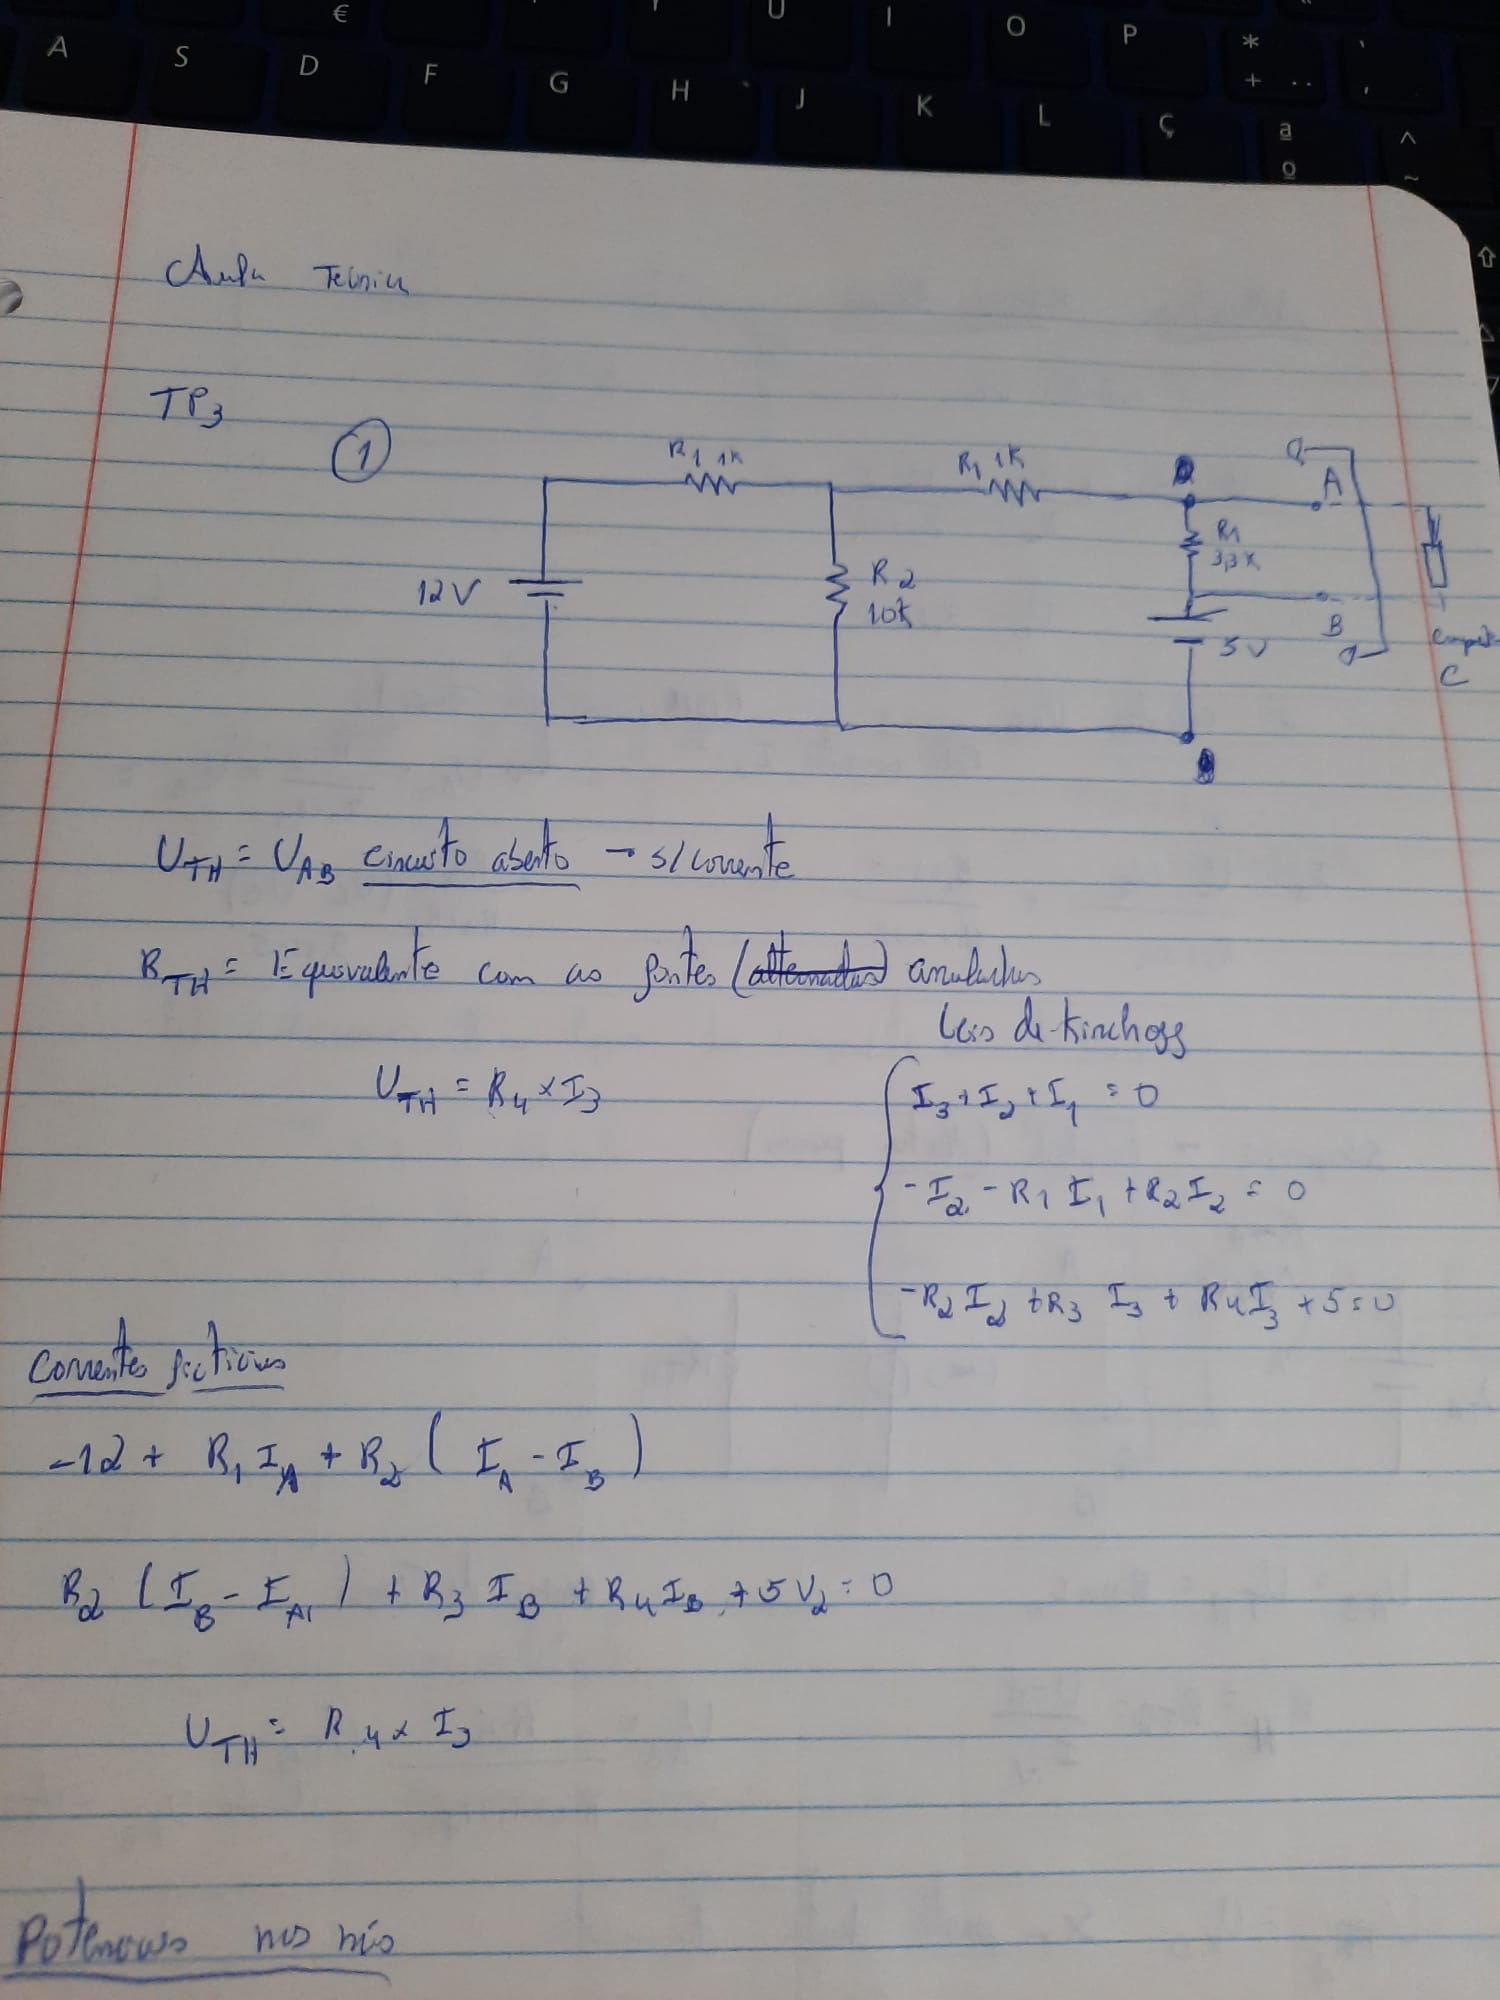 € U I O P * + ¨ `
A S D F G H J K L Ç ª º ^ ~
Aula Teórica
TP3
1
R1 1K
R1 1K
A
R1
3,3K
12V
R2
10K
B
5V
C
UTH = UAB circuito aberto → s/ corrente
RTH = Equivalente com as fontes (alternadas) anuladas
Leis de Kirchoff
UTH = R4 x I3
I3 + I2 + I1 = 0
- I2 - R1 I1 + R2 I2 = 0
- R2 I2 + R3 I3 + R4 I3 + 5 = 0
Correntes fictícias
-12 + R1 IA + R2 ( IA - IB )
R2 ( IB - IA ) + R3 IB + R4 IB + 5 V2 = 0
UTH = R4 x I3
Potenciais nos nós